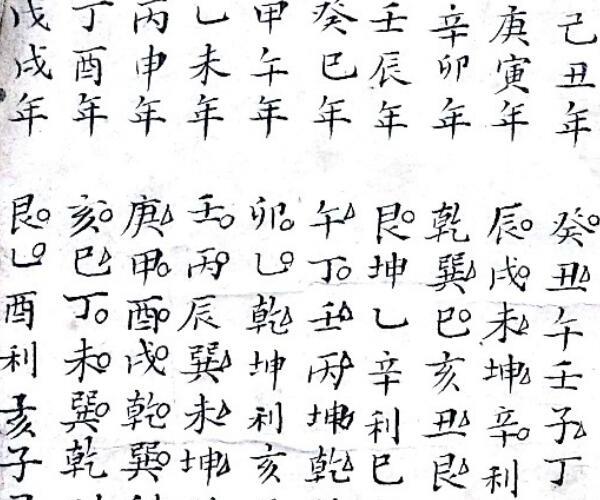 己丑年
庚寅年
辛卯年
壬辰年
癸巳年
甲午年
乙未年
丙申年
丁酉年
戊戌年
癸○丑△午壬子△丁
辰○戌○未△坤△辛○利
乾巽△巳○亥丑△艮
艮○坤乙辛利巳
午△丁○壬△丙△坤乾△
卯○乙○乾△坤利亥
壬○丙○辰巽△未△坤△
庚△甲○酉○戌○乾○巽○
亥○巳○丁○未○巽○乾
艮○乙○酉利亥子